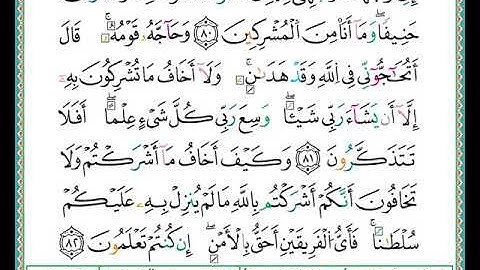 حَنِيفًا وَمَآ أَنَا۠ مِنَ ٱلْمُشْرِكِينَ ٨٠ وَحَآجَّهُۥ قَوْمُهُۥ ۚ قَالَ
أَتُحَٰٓجُّوٓنِّى فِى ٱللَّهِ وَقَدْ هَدَىٰنِ ۚ وَلَآ أَخَافُ مَا تُشْرِكُونَ بِهِۦٓ
إِلَّآ أَن يَشَآءَ رَبِّى شَيْـًٔا ۗ وَسِعَ رَبِّى كُلَّ شَىْءٍ عِلْمًا ۗ أَفَلَا
تَتَذَكَّرُونَ ٨١ وَكَيْفَ أَخَافُ مَآ أَشْرَكْتُمْ وَلَا
تَخَافُونَ أَنَّكُمْ أَشْرَكْتُم بِٱللَّهِ مَا لَمْ يُنَزِّلْ بِهِۦ عَلَيْكُمْ
سُلْطَٰنًا ۚ فَأَىُّ ٱلْفَرِيقَيْنِ أَحَقُّ بِٱلْأَمْنِ ۖ إِن كُنتُمْ تَعْلَمُونَ ٨٢